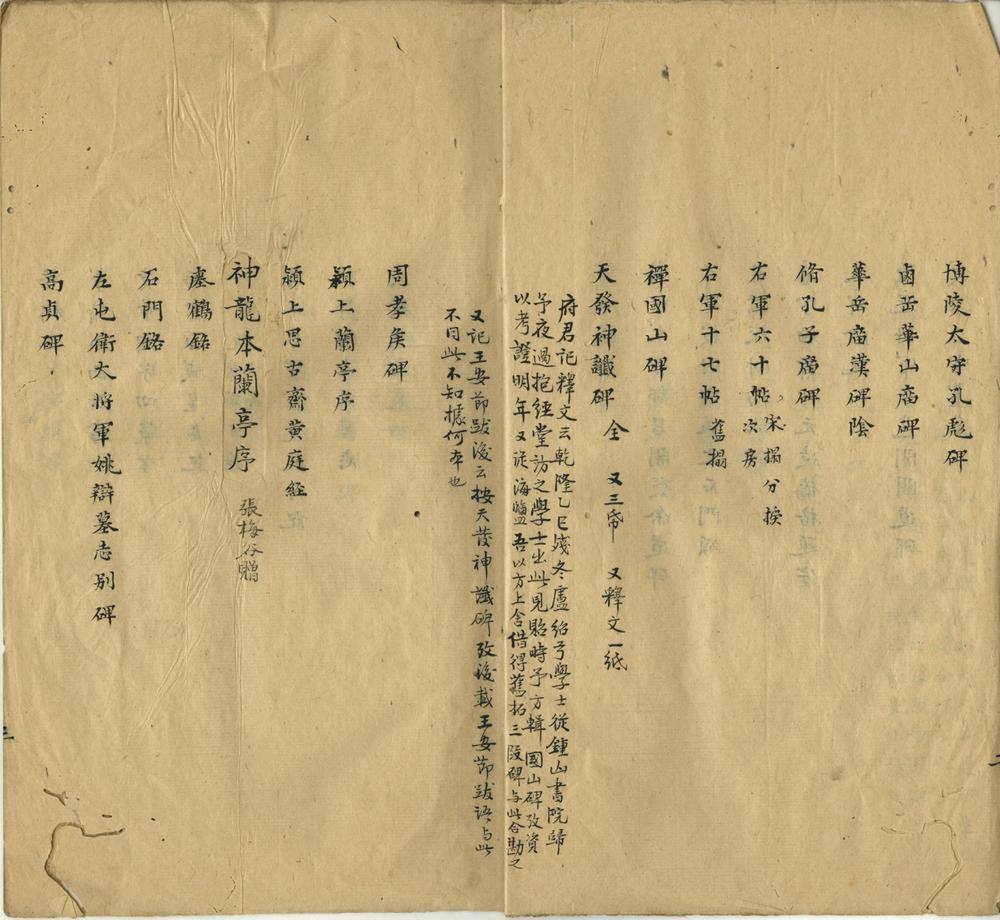 博陵太守孔彪碑
鹵岳華山廟碑
華岳廟漢碑陰
脩孔子廟碑
右軍六十帖 宋搨分揆
次房
右軍十七帖 舊搨
禪國山碑
天發神讖碑 全 又三帋 又釋文一紙
府君記釋文云乾隆乙巳殘冬盧紹弓學士從鍾山書院歸
予夜過抱經堂訪之學士出此見貽時予方輯國山碑攷資
以考證明年又從海鹽吾以方上舍借得舊拓三段碑与此合勘之
又記王安節跋後云按天發神讖碑攷後載王安節跋語与此
不同此不知據何本也
周孝矦碑
潁上蘭亭序
潁上思古齋黃庭経
神龍本蘭亭序 張梅谷贈
瘞鶴銘
石門銘
左屯衛大将軍姚辯墓志别碑
高貞碑
二
三